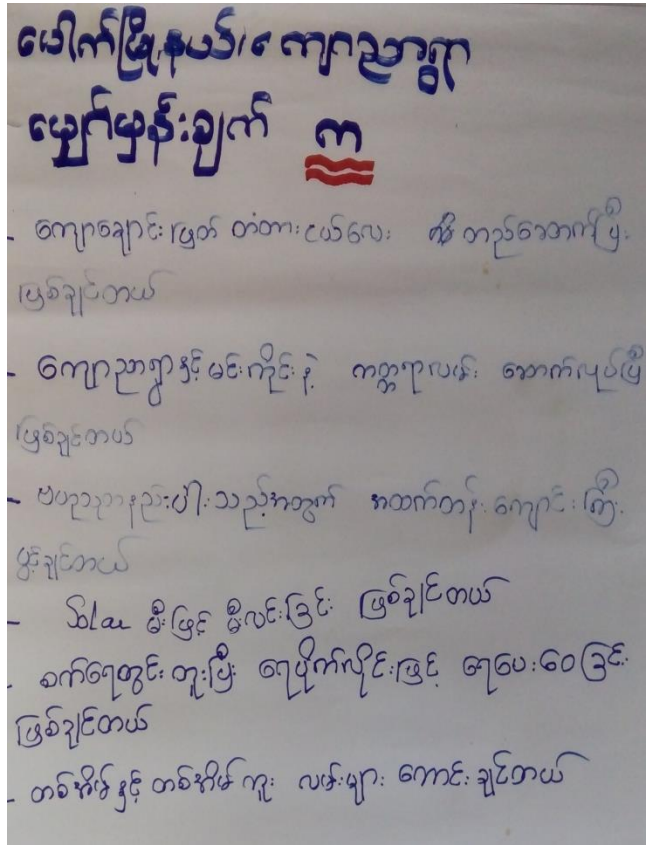 ပေါက်မြို့နယ်၊ ကျောညှာရွာ
မျှော်မှန်းချက် က
- ကျောချောင်းဖြတ် တံတားငယ်လေး တည်ဆောက်ပြီး
ဖြစ်ချင်တယ်
- ကျောညှာရွာနှင့် မင်းကိုင်းနဲ့ ကတ္တရာလမ်း ဖောက်လုပ်ပြီး
ဖြစ်ချင်တယ်
- ဗဟုသုတနည်းပါးသည့်အတွက် အထက်တန်း ကျောင်းကြီး
ဖွင့်ချင်တယ်
- Solar မီးဖြင့် မီးလင်းခြင်း ဖြစ်ချင်တယ်
- စက်ရေတွင်းတူးပြီး ရေပိုက်လိုင်းဖြင့် ရေပေးဝေခြင်း
ဖြစ်ချင်တယ်
- တစ်အိမ်နှင့် တစ်အိမ်ကူး လမ်းများ ကောင်းချင်တယ်